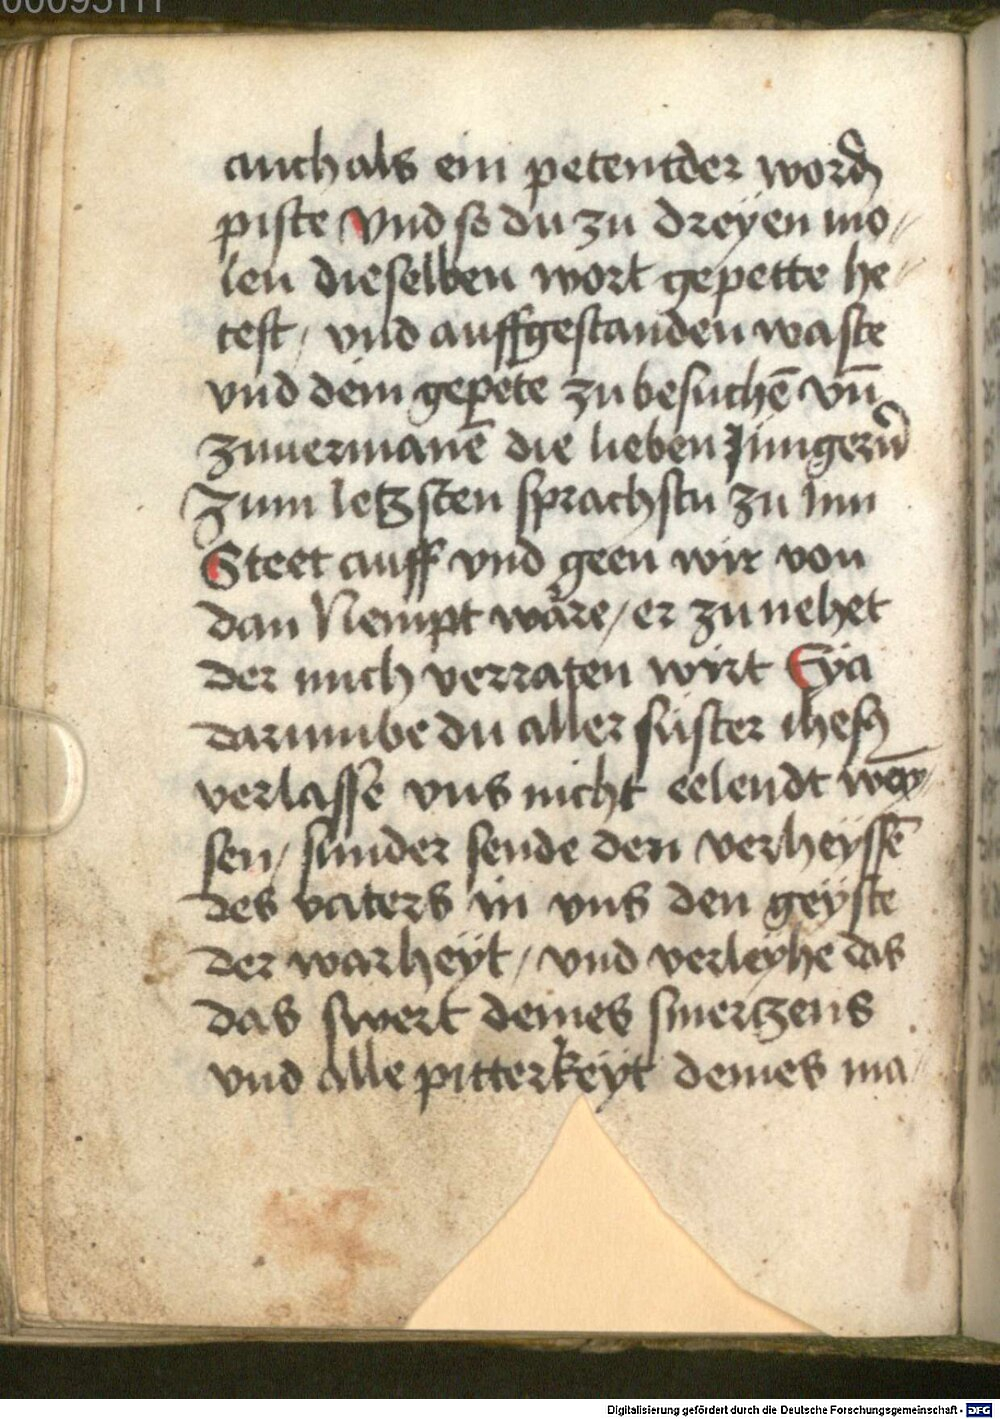 00095111
auch als ein petentder word̄
piste Vnd so du zu dreÿen mo⸗
len dieselben wort gepette he⸗
test / vnd auffgestanden waste
vnd dem gepete zu besuchē vn̄
zuuermanē die lieben Jungern̄
Zum letzsten sprachstu zu Inn
Steet auff vnd geen wir von
dan Nempt ware / er zu nehet
der mich verraten wirt Eÿa
darumbe du aller süster ihesu
verlassē vns nicht eelendt weÿ⸗
sen / sunder sende den verheÿssē
des vaters in vns den geÿste
der warheÿt / vnd verleÿhe das
das swert deines smertzens
vnd alle pitterkeÿt deines ma⸗
Digitalisierung gefördert durch die Deutsche Forschungsgemeinschaft - DFG